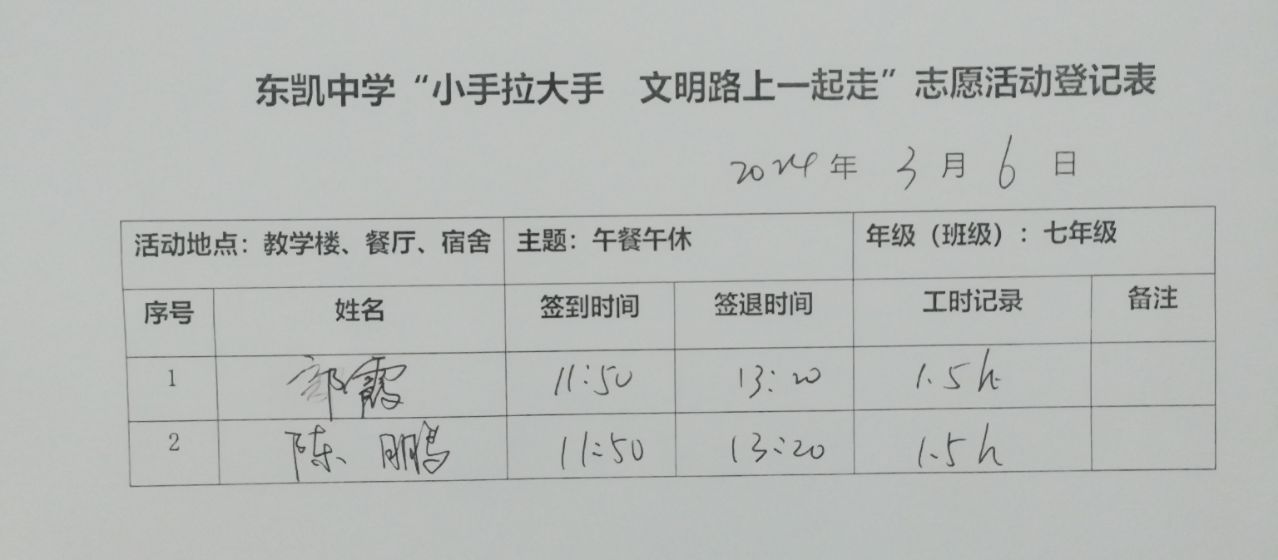 东凯中学“小手拉大手　文明路上一起走”志愿活动登记表
2024年 3月 6日
活动地点：教学楼、餐厅、宿舍 主题：午餐午休 年级（班级）：七年级
序号 姓名 签到时间 签退时间 工时记录 备注
1 郭霞 11:50 13:20 1.5h
2 陈鹏 11:50 13:20 1.5h